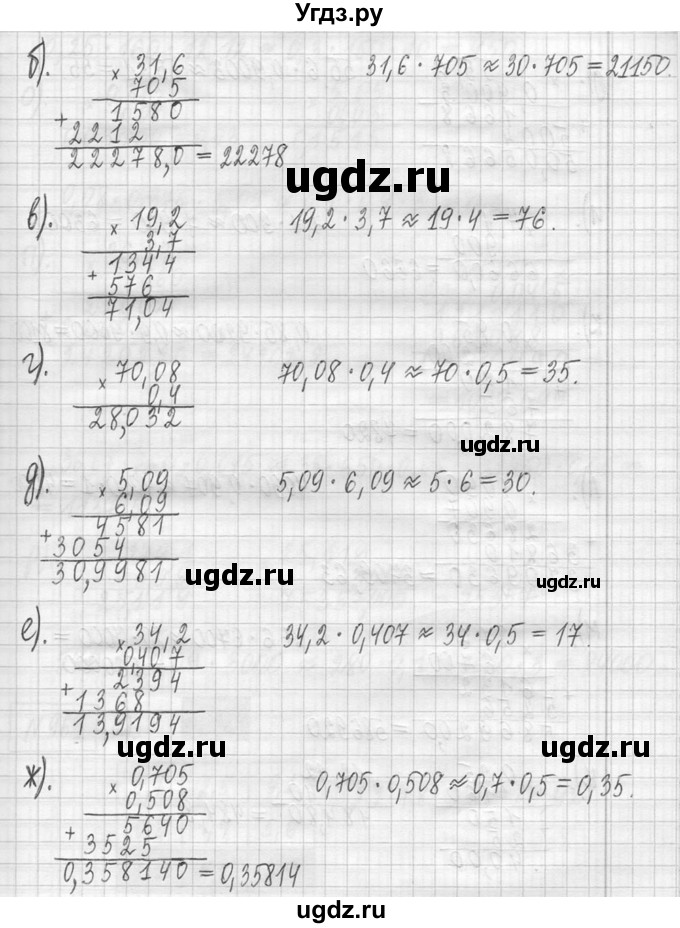 Угдз.ру
б).
× 31,6
705
1580
+ 2212
22278,0 = 22278
31,6 · 705 ≈ 30 · 705 = 21150.
ugdz.ru
в).
× 19,2
3,7
1344
+ 576
71,04
19,2 · 3,7 ≈ 19 · 4 = 76.
г).
× 70,08
0,4
28,032
70,08 · 0,4 ≈ 70 · 0,5 = 35.
ugdz.ru
д).
× 5,09
6,09
4581
+ 3054
30,9981
5,09 · 6,09 ≈ 5 · 6 = 30.
ugdz.ru
ugdz.ru
е).
× 34,2
0,407
2394
+ 1368
13,9194
34,2 · 0,407 ≈ 34 · 0,5 = 17.
ugdz.ru
ugdz.ru
ж).
× 0,705
0,508
5640
+ 3525
0,358140 = 0,35814
0,705 · 0,508 ≈ 0,7 · 0,5 = 0,35.
ugdz.ru
ugdz.ru